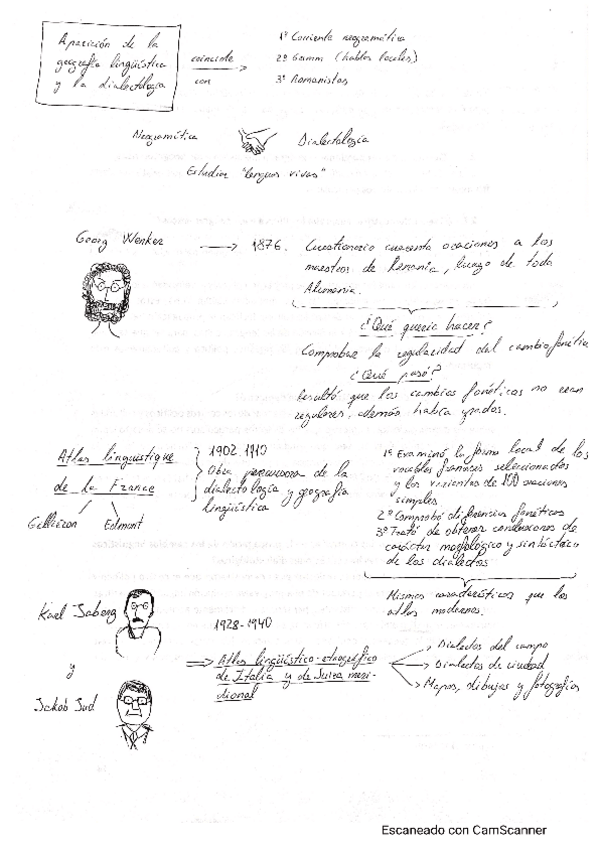 Aparición de la
geografía lingüística
y la dialectología
coincide
con
1º Corriente neogramática
2º Grimm (hablas locales)
3º Romanistas
Neogramática
Dialectología
Estudiar "lenguas vivas"
Georg Wenker
1876.
Cuestionario cuarenta oraciones a los
maestros de Renania, luego de toda
Alemania.
¿Qué quería hacer?
Comprobar la regularidad del cambio fonético
¿Qué pasó?
Resultó que los cambios fonéticos no eran
regulares, además había grados.
Atlas linguistique
de la France
Gilliéron
Edmont
1902-1910
Obra precursora de la
dialectología y geografía
lingüística
1º Examinó la forma local de los
vocablos franceses seleccionados
y las variantes de 100 oraciones
simples
2º Comprobó diferencias fonéticas
3º Trató de obtener conclusiones de
carácter morfológico y sintáctico
de los dialectos
Mismas características que los
atlas modernos.
Karl Jaberg
y
Jakob Jud
1928-1940
Atlas lingüístico-etnográfico
de Italia y de Suiza meri-
dional
Dialectos del campo
Dialectos de ciudad
Mapas, dibujos y fotografías
Escaneado con CamScanner